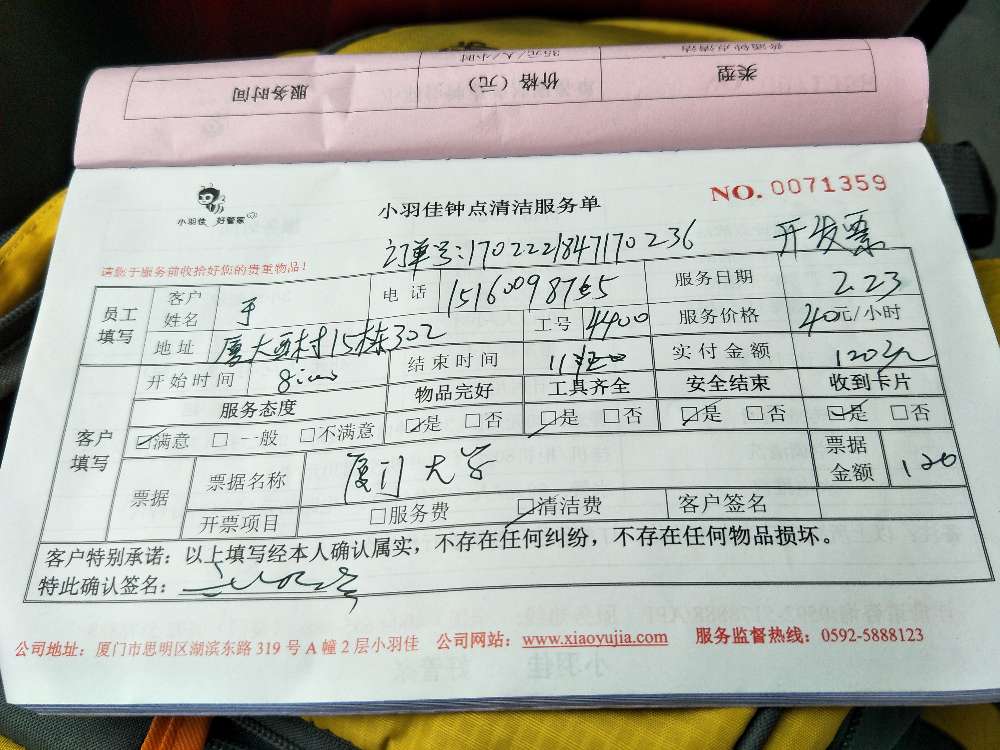 普通钟点清洁 35元/人/小时
类型 价格（元） 服务时间
小羽佳 好管家
小羽佳钟点清洁服务单
NO. 0071359
订单号:1702221847170236 开发票
请您于服务前收拾好您的贵重物品！
员工填写 客户姓名 于 电话 15160098765 服务日期 2.23
地址 厦大西村15栋302 工号 4400 服务价格 40元/小时
开始时间 结束时间 实付金额 120元
客户填写 服务态度 物品完好 工具齐全 安全结束 收到卡片
☑满意 □一般 □不满意 ☑是 □否 ☑是 □否 ☑是 □否 ☑是 □否
票据 票据名称 厦门大学 票据金额 120
开票项目 □服务费 ☑清洁费 客户签名
客户特别承诺：以上填写经本人确认属实，不存在任何纠纷，不存在任何物品损坏。
特此确认签名：
公司地址：厦门市思明区湖滨东路 319 号 A 幢 2 层小羽佳 公司网站：www.xiaoyujia.com 服务监督热线：0592-5888123